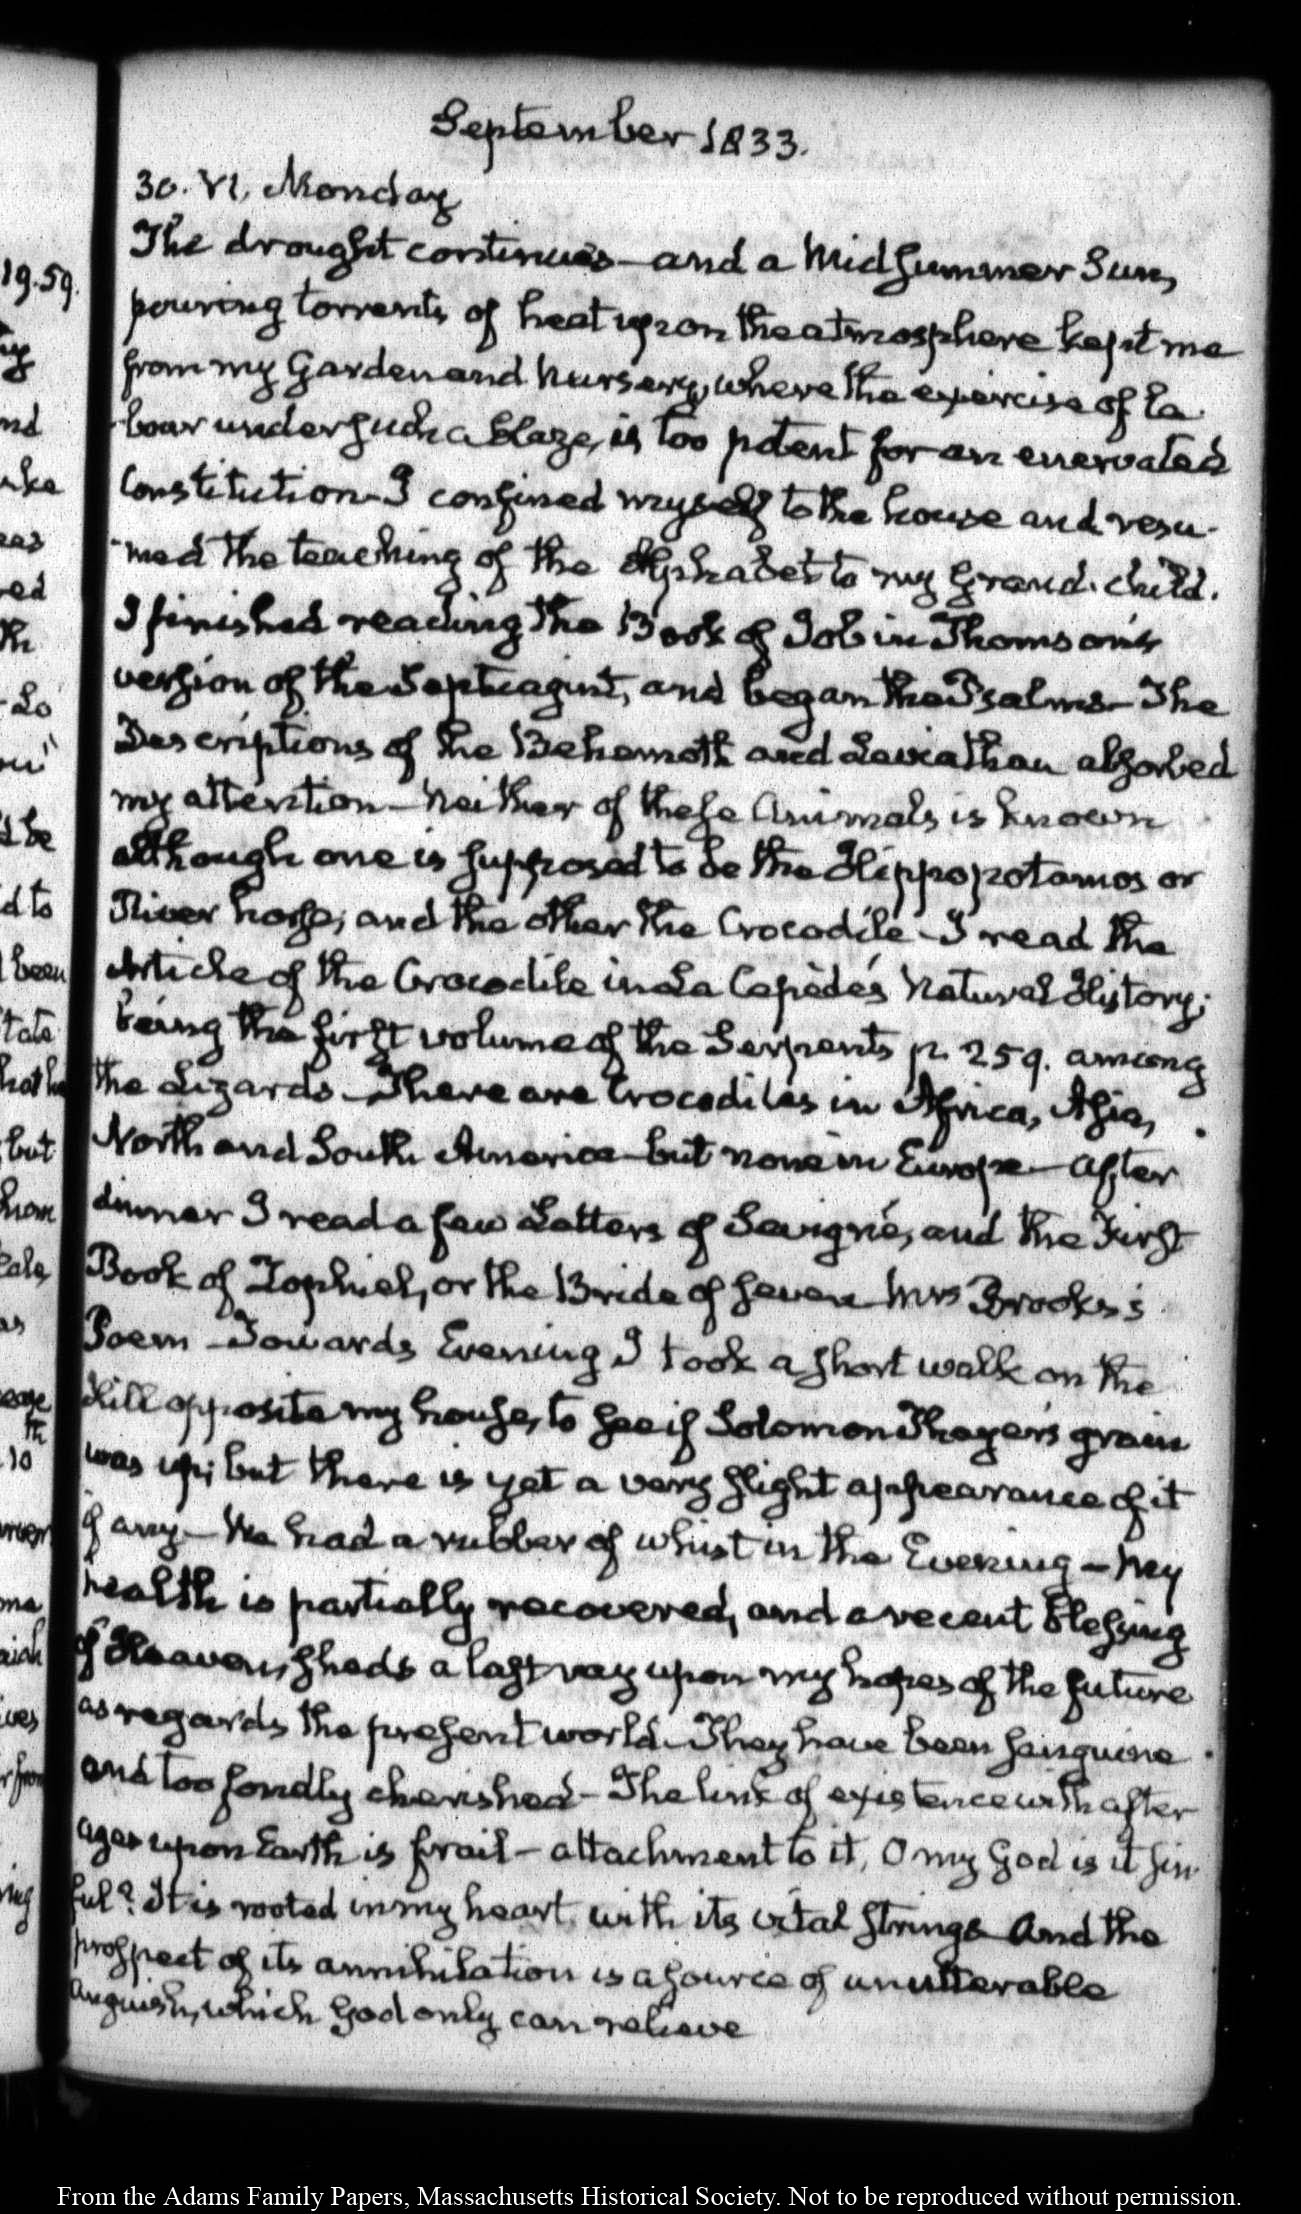 September 1833.
30. VI. Monday
The drought continues—and a Midsummer Sun,
pouring torrents of heat upon the atmosphere kept me
from my Garden and Nursery, where the exercise of la-
-bour under such a blaze, is too potent for an enervated
Constitution—I confined myself to the house and resu-
-med the teaching of the Alphabet to my Grand-child.
I finished reading the Book of Job in Thomson's
version of the Septuagint, and began the Psalms—The
Descriptions of the Behemoth and Leviathan absorbed
my attention—Neither of these Animals is known
although one is supposed to be the Hippopotamos or
River horse; and the other the Crocodile—I read the
Article of the Crocodile in La Cepède's Natural History;
being the first volume of the Serpents p. 259. among
the Lizards—There are Crocodiles in Africa, Asia,
North and South America—but none in Europe—After
dinner I read a few Letters of Sevigné, and the First
Book of Zophiel, or the Bride of Seven—Mrs Brooks's
Poem—Towards Evening I took a short walk on the
Hill opposite my house, to see if Solomon Thayer's grain
was up; but there is yet a very slight appearance of it
if any—We had a rubber of whist in the Evening—My
health is partially recovered, and a recent blessing
of Heaven, sheds a last ray upon my hopes of the future
as regards the present world—They have been sanguine
and too fondly cherished—The link of existence with after
ages upon Earth is frail—attachment to it, O my God is it sin-
ful? It is rooted in my heart with its vital strings—And the
prospect of its annihilation is a source of unutterable
anguish, which God only can relieve
19.59.
nd
red
th
"
be
d to
been
but
as
th
10
ma
ives
From the Adams Family Papers, Massachusetts Historical Society. Not to be reproduced without permission.